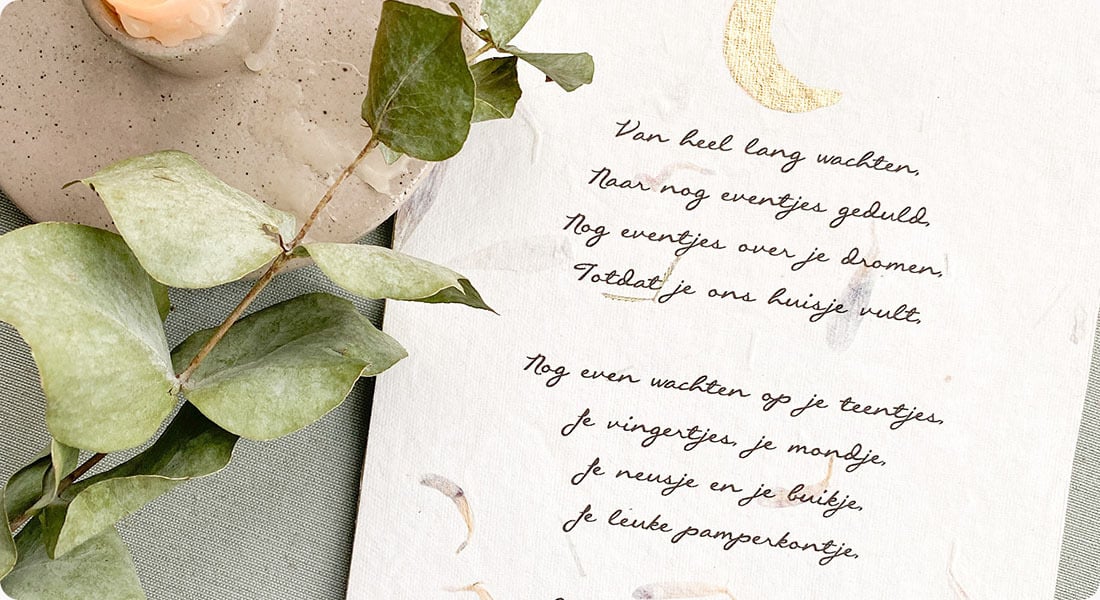 Van heel lang wachten,
Naar nog eventjes geduld,
Nog eventjes over je dromen,
Totdat je ons huisje vult,
Nog even wachten op je teentjes,
Je vingertjes, je mondje,
Je neusje en je buikje,
Je leuke pamperkontje,